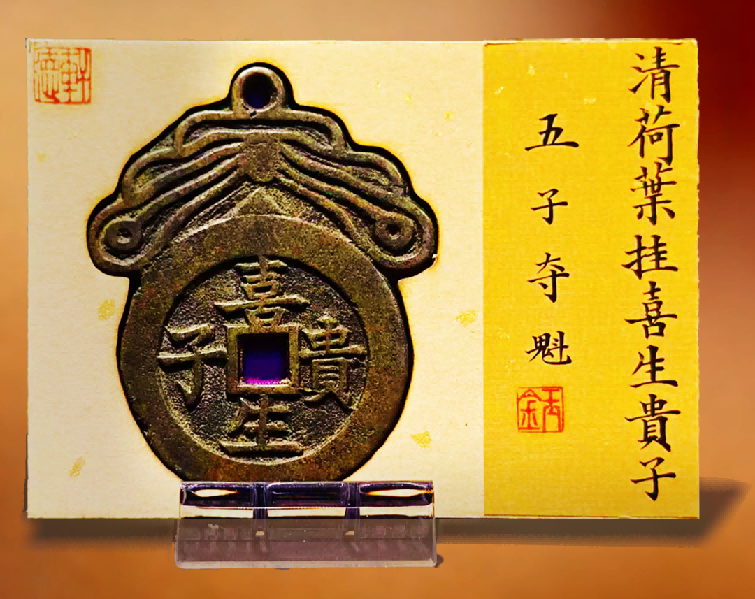 清荷葉挂喜生貴子
五子夺魁
喜生貴子